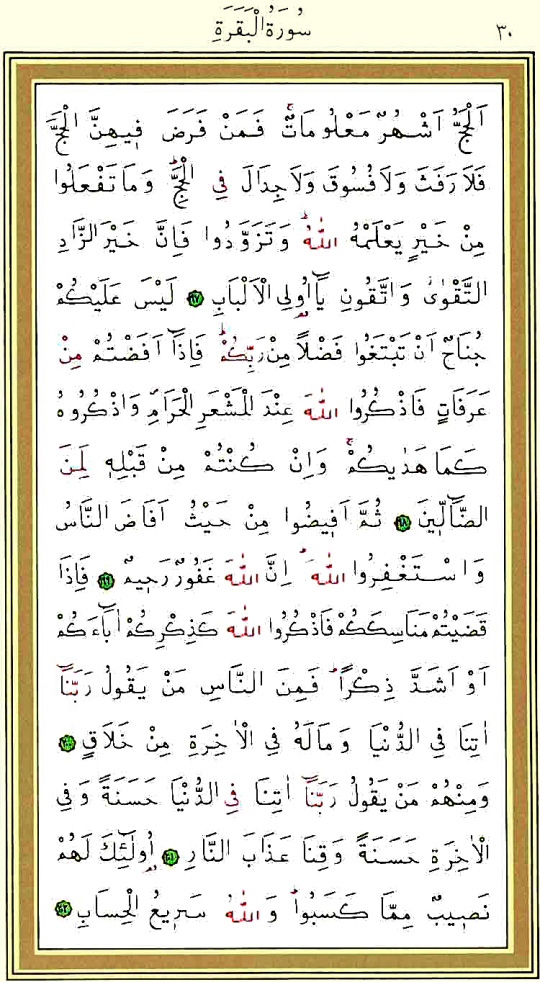 ٣٠ سُورَةُ الْبَقَرَةِ
اَلْحَجُّ اَشْهُرٌ مَعْلُومَاتٌۚ فَمَنْ فَرَضَ فٖيهِنَّ الْحَجَّ
فَلَا رَفَثَ وَلَا فُسُوقَ وَلَا جِدَالَ فِي الْحَجِّۜ وَمَا تَفْعَلُوا
مِنْ خَيْرٍ يَعْلَمْهُ اللّٰهُۜ وَتَزَوَّدُوا فَاِنَّ خَيْرَ الزَّادِ
التَّقْوٰى وَاتَّقُونِ يَٓا اُو۬لِي الْاَلْبَابِ ﴿١٩٧﴾ لَيْسَ عَلَيْكُمْ
جُنَاحٌ اَنْ تَبْتَغُوا فَضْلًا مِنْ رَبِّكُمْۜ فَاِذَٓا اَفَضْتُمْ مِنْ
عَرَفَاتٍ فَاذْكُرُوا اللّٰهَ عِنْدَ الْمَشْعَرِ الْحَرَامِۖ وَاذْكُرُوهُ
كَمَا هَدٰيكُمْۚ وَاِنْ كُنْتُمْ مِنْ قَبْلِهٖ لَمِنَ
الضَّٓالّٖينَ ﴿١٩٨﴾ ثُمَّ اَفٖيضُوا مِنْ حَيْثُ اَفَاضَ النَّاسُ
وَاسْتَغْفِرُوا اللّٰهَۜ اِنَّ اللّٰهَ غَفُورٌ رَحٖيمٌ ﴿١٩٩﴾ فَاِذَا
قَضَيْتُمْ مَنَاسِكَكُمْ فَاذْكُرُوا اللّٰهَ كَذِكْرِكُمْ اٰبَٓاءَكُمْ
اَوْ اَشَدَّ ذِكْرًاۜ فَمِنَ النَّاسِ مَنْ يَقُولُ رَبَّنَٓا
اٰتِنَا فِي الدُّنْيَا وَمَا لَهُ فِي الْاٰخِرَةِ مِنْ خَلَاقٍ ﴿٢٠٠﴾
وَمِنْهُمْ مَنْ يَقُولُ رَبَّنَٓا اٰتِنَا فِي الدُّنْيَا حَسَنَةً وَفِي
الْاٰخِرَةِ حَسَنَةً وَقِنَا عَذَابَ النَّارِ ﴿٢٠١﴾ اُو۬لٰٓئِكَ لَهُمْ
نَصٖيبٌ مِمَّا كَسَبُواۜ وَاللّٰهُ سَرٖيعُ الْحِسَابِ ﴿٢٠٢﴾